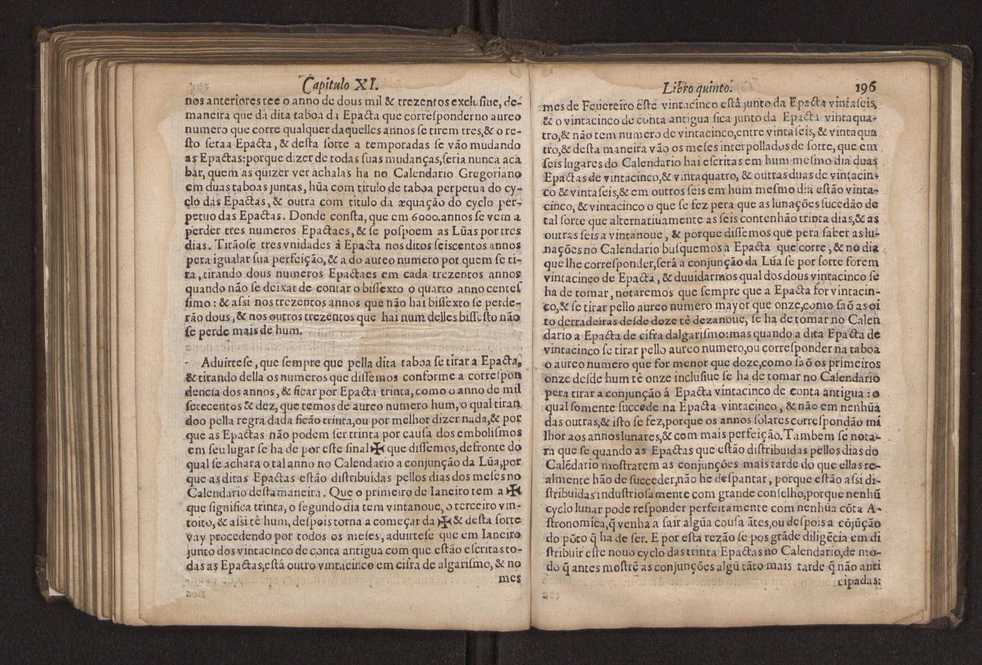 Capitulo XI.
nos anteriores tee o anno de dous mil & trezentos exclusiue, de-
maneira que da dita taboa da Epacta que corresponder no aureo
numero que corre qualquer daquelles annos se tirem tres, & o re-
sto sera a Epacta, & desta sorte a temporadas se vão mudando
as Epactas: porque dizer de todas suas mudanças, seria nunca aca
bar, quem as quizer ver achalas ha no Calendario Gregoriano
em duas taboas juntas, hũa com titulo de taboa perpetua do cy-
clo das Epactas, & outra com titulo da æquação do cyclo per-
petuo das Epactas. Donde consta, que em 6000. annos se vem a
perder tres numeros Epactaes, & se pospoem as Lũas por tres
dias. Tirãose tres vnidades á Epacta nos ditos seiscentos annos
pera igualar sua perfeição, & a do aureo numero por quem se ti-
ra, tirando dous numeros Epactaes em cada trezentos annos
quando não se deixar de contar o bissexto o quarto anno centes
simo: & assi nos trezentos annos que não hai bissexto se perde-
rão dous, & nos outros trezentos que hai num delles bissesto não
se perde mais de hum.
Aduirtese, que sempre que pella dita taboa se tirar a Epacta,
& tirando della os numeros que dissemos conforme a correspon
dencia dos annos, & ficar por Epacta trinta, como o anno de mil
setecentos & dez, que temos de aureo numero hum, o qual tiran
doo pella regra dada ficão trinta, ou por melhor dizer nada, & por
que as Epactas não podem ser trinta por causa dos embolismos
em seu lugar se ha de por este sinal ✠ que dissemos, defronte do
qual se achara o tal anno no Calendario a conjunção da Lũa, por
que as ditas Epactas estão distribuidas pellos dias dos meses no
Calendario desta maneira. Que o primeiro de Ianeiro tem a ✠
que significa trinta, o segundo dia tem vintanoue, o terceiro vin-
toito, & assi tè hum, despois torna a começar da ✠ & desta sorte
vay procedendo por todos os meses, aduirtese que em Ianeiro
junto dos vintacinco de conta antigua com que estão escritas to-
das as Epactas, está outro vintacinco em cifra de algarismo, & no
mes
Libro quinto. 196
mes de Feuereiro este vintacinco está junto da Epacta vintaseis,
& o vintacinco de conta antigua fica junto da Epacta vintaqua-
tro, & não tem numero de vintacinco, entre vintaseis, & vintaqua
tro, & desta maneira vão os meses interpollados de sorte, que em
seis lugares do Calendario hai escritas em hum mesmo dia duas
Epactas de vintacinco, & vintaquatro, & outras duas de vintacin-
co & vintaseis, & em outros seis em hum mesmo dia estão vinta-
cinco, & vintacinco o que se fez pera que as lunações sucedão de
tal sorte que alternatiuamente as seis contenhão trinta dias, & as
outras seis a vintanoue, & porque dissemos que pera saber as lu-
nações no Calendario busquemos a Epacta que corre, & no dia
que lhe corresponder, serà a conjunção da Lũa se por sorte forem
vintacinco de Epacta, & duuidarmos qual dos dous vintacinco se
ha de tomar, notaremos que sempre que a Epacta for vintacin-
co, & se tirar pello aureo numero mayor que onze, como saõ as oi
to derradeiras desde doze tè dezanoue, se ha de tomar no Calen
dario a Epacta de cifra dalgarismo: mas quando a dita Epacta de
vintacinco se tirar pello aureo numero, ou corresponder na taboa
o aureo numero que for menor que doze, como saõ os primeiros
onze desde hum tè onze inclusiue se ha de tomar no Calendario
pera tirar a conjunção á Epacta vintacinco de conta antigua: o
qual somente succede na Epacta vintacinco, & não em nenhũa
das outras, & isto se fez, porque os annos solares correspondão mi
lhor aos annos lunares, & com mais perfeição. Tambem se nota-
ra que se quando as Epactas que estão distribuidas pellos dias do
Calẽdario mostrarem as conjunções mais tarde do que ellas re-
almente hão de succeder, não he despantar, porque estão assi di-
stribuidas industriosamente com grande conselho, porque nenhũ
cyclo lunar pode responder perfeitamente com nenhũa cõta A-
stronomica, q̃ venha a sair algũa cousa ãtes, ou despois a cõjũção
do põto q̃ ha de ser. E por esta rezão se pos grãde diligẽcia em di
stribuir este nouo cyclo das trinta Epactas no Calendario, de mo-
do q̃ antes mostrẽ as conjunções algũ tãto mais tarde q̃ não anti
cipadas: